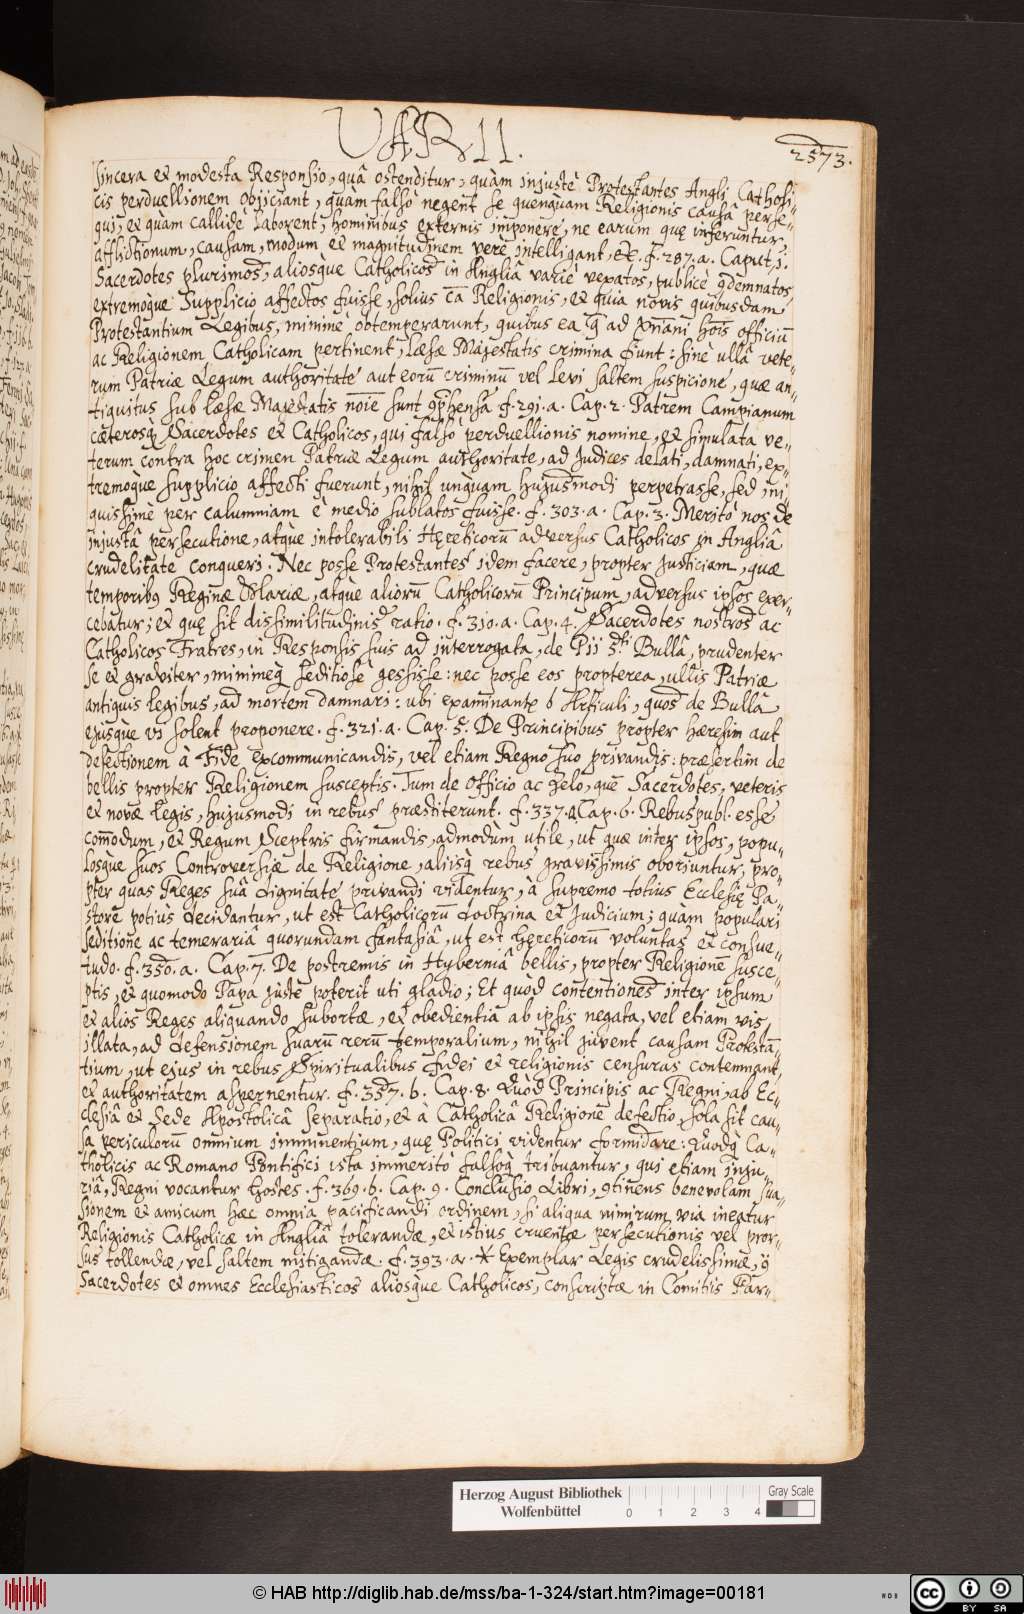 VARII.
2573.
sincera et modesta Responsio, quâ ostenditur, quàm injustè Protestantes Angli Catholi=
cis perduellionem objiciant, quàm falsò negent se quenquam Religionis causâ perse=
qui, et quàm callidè laborent, hominibus externis imponere, ne earum quę inferuntur
afflictionum, causam, modum et magnitudinem verè intelligant, etc. f. 287. a. Caput, j.
Sacerdotes plurimos, aliosque Catholicos in Angliâ variè vexatos, publicè ꝯdemnatos,
extremoque Supplicio affectos fuisse, solius cā Religionis, et quia novis quibusdam
Protestantium Legibus, minimè obtemperarunt, quibus ea q̄ ad Xn̄iani hōis officiū
ac Religionem Catholicam pertinent, læsæ Majestatis crimina fiunt: sinè ullâ vete=
rum Patriæ Legum authoritate aut eorū criminū vel levi saltem suspicione, quæ an=
tiquitus sub læsæ Majestatis nōie sunt ꝯp̄hensa f. 291. a. Cap. 2. Patrem Campianum
cæterosq; Sacerdotes et Catholicos, qui falsò perduellionis nomine, et simulata ve=
terum contra hoc crimen Patriæ Legum authoritate, ad Judices delati, damnati, ex=
tremoque supplicio affecti fuerunt, nihil unquam hujusmodi perpetrasse, sed ini=
quissimè per calumniam è medio sublatos fuisse. f. 303. a. Cap. 3. Meritò nos de
injustâ persecutione, atque intolerabili Hęreticorū adversus Catholicos in Angliâ
crudelitate conqueri: Nec posse Protestantes idem facere, propter Justiciam, quæ
temporibꝰ Reginæ Mariæ, atque aliorū Catholicorū Principum, adversus ipsos exer=
cebatur; et quę sit dissimilitudinis ratio. f. 310. a. Cap. 4. Sacerdotes nostros ac
Catholicos Fratres, in Responsis suis ad interrogata, de Pii 5.ti Bullâ, prudenter
se et graviter, minimeq; seditiosè gessisse: nec posse eos propterea, ullis Patriæ
antiquis legibus, ad mortem damnari: ubi examinantꝛ 6 Articuli, quos de Bullâ
ejusque vi solent proponere. f. 321. a. Cap. 5. De Principibus propter hæresin aut
defectionem à Fide excommunicandis, vel etiam Regno suo privandis: præsertim de
bellis propter Religionem susceptis. Tum de officio ac zelo, quē Sacerdotes, veteris
et novæ legis, hujusmodi in rebus præstiterunt. f. 337. a Cap. 6. Rebuspubl. esse
com̄odum, et Regum Sceptris firmandis, admodùm utile, ut quæ inter ipsos, popu=
losque suos Controversiæ de Religione, aliisq; rebus gravissimis oboriuntur, pro=
pter quas Reges suâ dignitate privandi videntur, à supremo totius Ecclesię Pa=
store potiùs decidantur, ut est Catholicorū doctrina et Judicium; quàm populari
seditione ac temerariâ quorundam fantasiâ, ut est hęreticorū voluntas et consue=
tudo. f. 350. a. Cap. 7. De postremis in Hyberniâ bellis, propter Religionē susce=
ptis, et quomodo Papa juste poterit uti gladio; Et quòd contentiones inter ipsum
et alios Reges aliquando subortæ, et obedientia ab ipsis negata, vel etiam vis
illata, ad defensionem suarū rerū temporalium, nihil juvent causam Protestā=
tium, ut ejus in rebus Spiritualibus fidei et religionis censuras contemnant,
et authoritatem aspernentur. f. 357. b. Cap. 8. Quòd Principis ac Regni, ab Ec=
clesiâ et Sede Apostolicâ separatio, et à Catholicâ Religione defectio, sola sit cau=
sa periculorū omnium imminentium, quę Politici videntur formidare: Quodq; Ca=
tholicis ac Romano Pontifici ista immeritò falsòq; tribuantur, qui etiam inju=
riâ, Regni vocantur hostes. f. 369. b. Cap. 9. Conclusio Libri, ꝯtinens benevolam sua=
sionem et amicum hæc omnia pacificandi ordinem, si aliqua nimirum via ineatur
Religionis Catholicæ in Angliâ tolerandæ, et istius cruentæ persecutionis vel pror=
sus tollendæ, vel saltem mitigandæ. f. 393. a. * Exemplar Legis crudelissimæ, ꝯ
Sacerdotes et omnes Ecclesiasticos aliosque Catholicos, conscriptæ in Comitiis Par=
Herzog August Bibliothek
Wolfenbüttel
0 1 2 3 4
Gray Scale
© HAB http://diglib.hab.de/mss/ba-1-324/start.htm?image=00181
cc BY SA